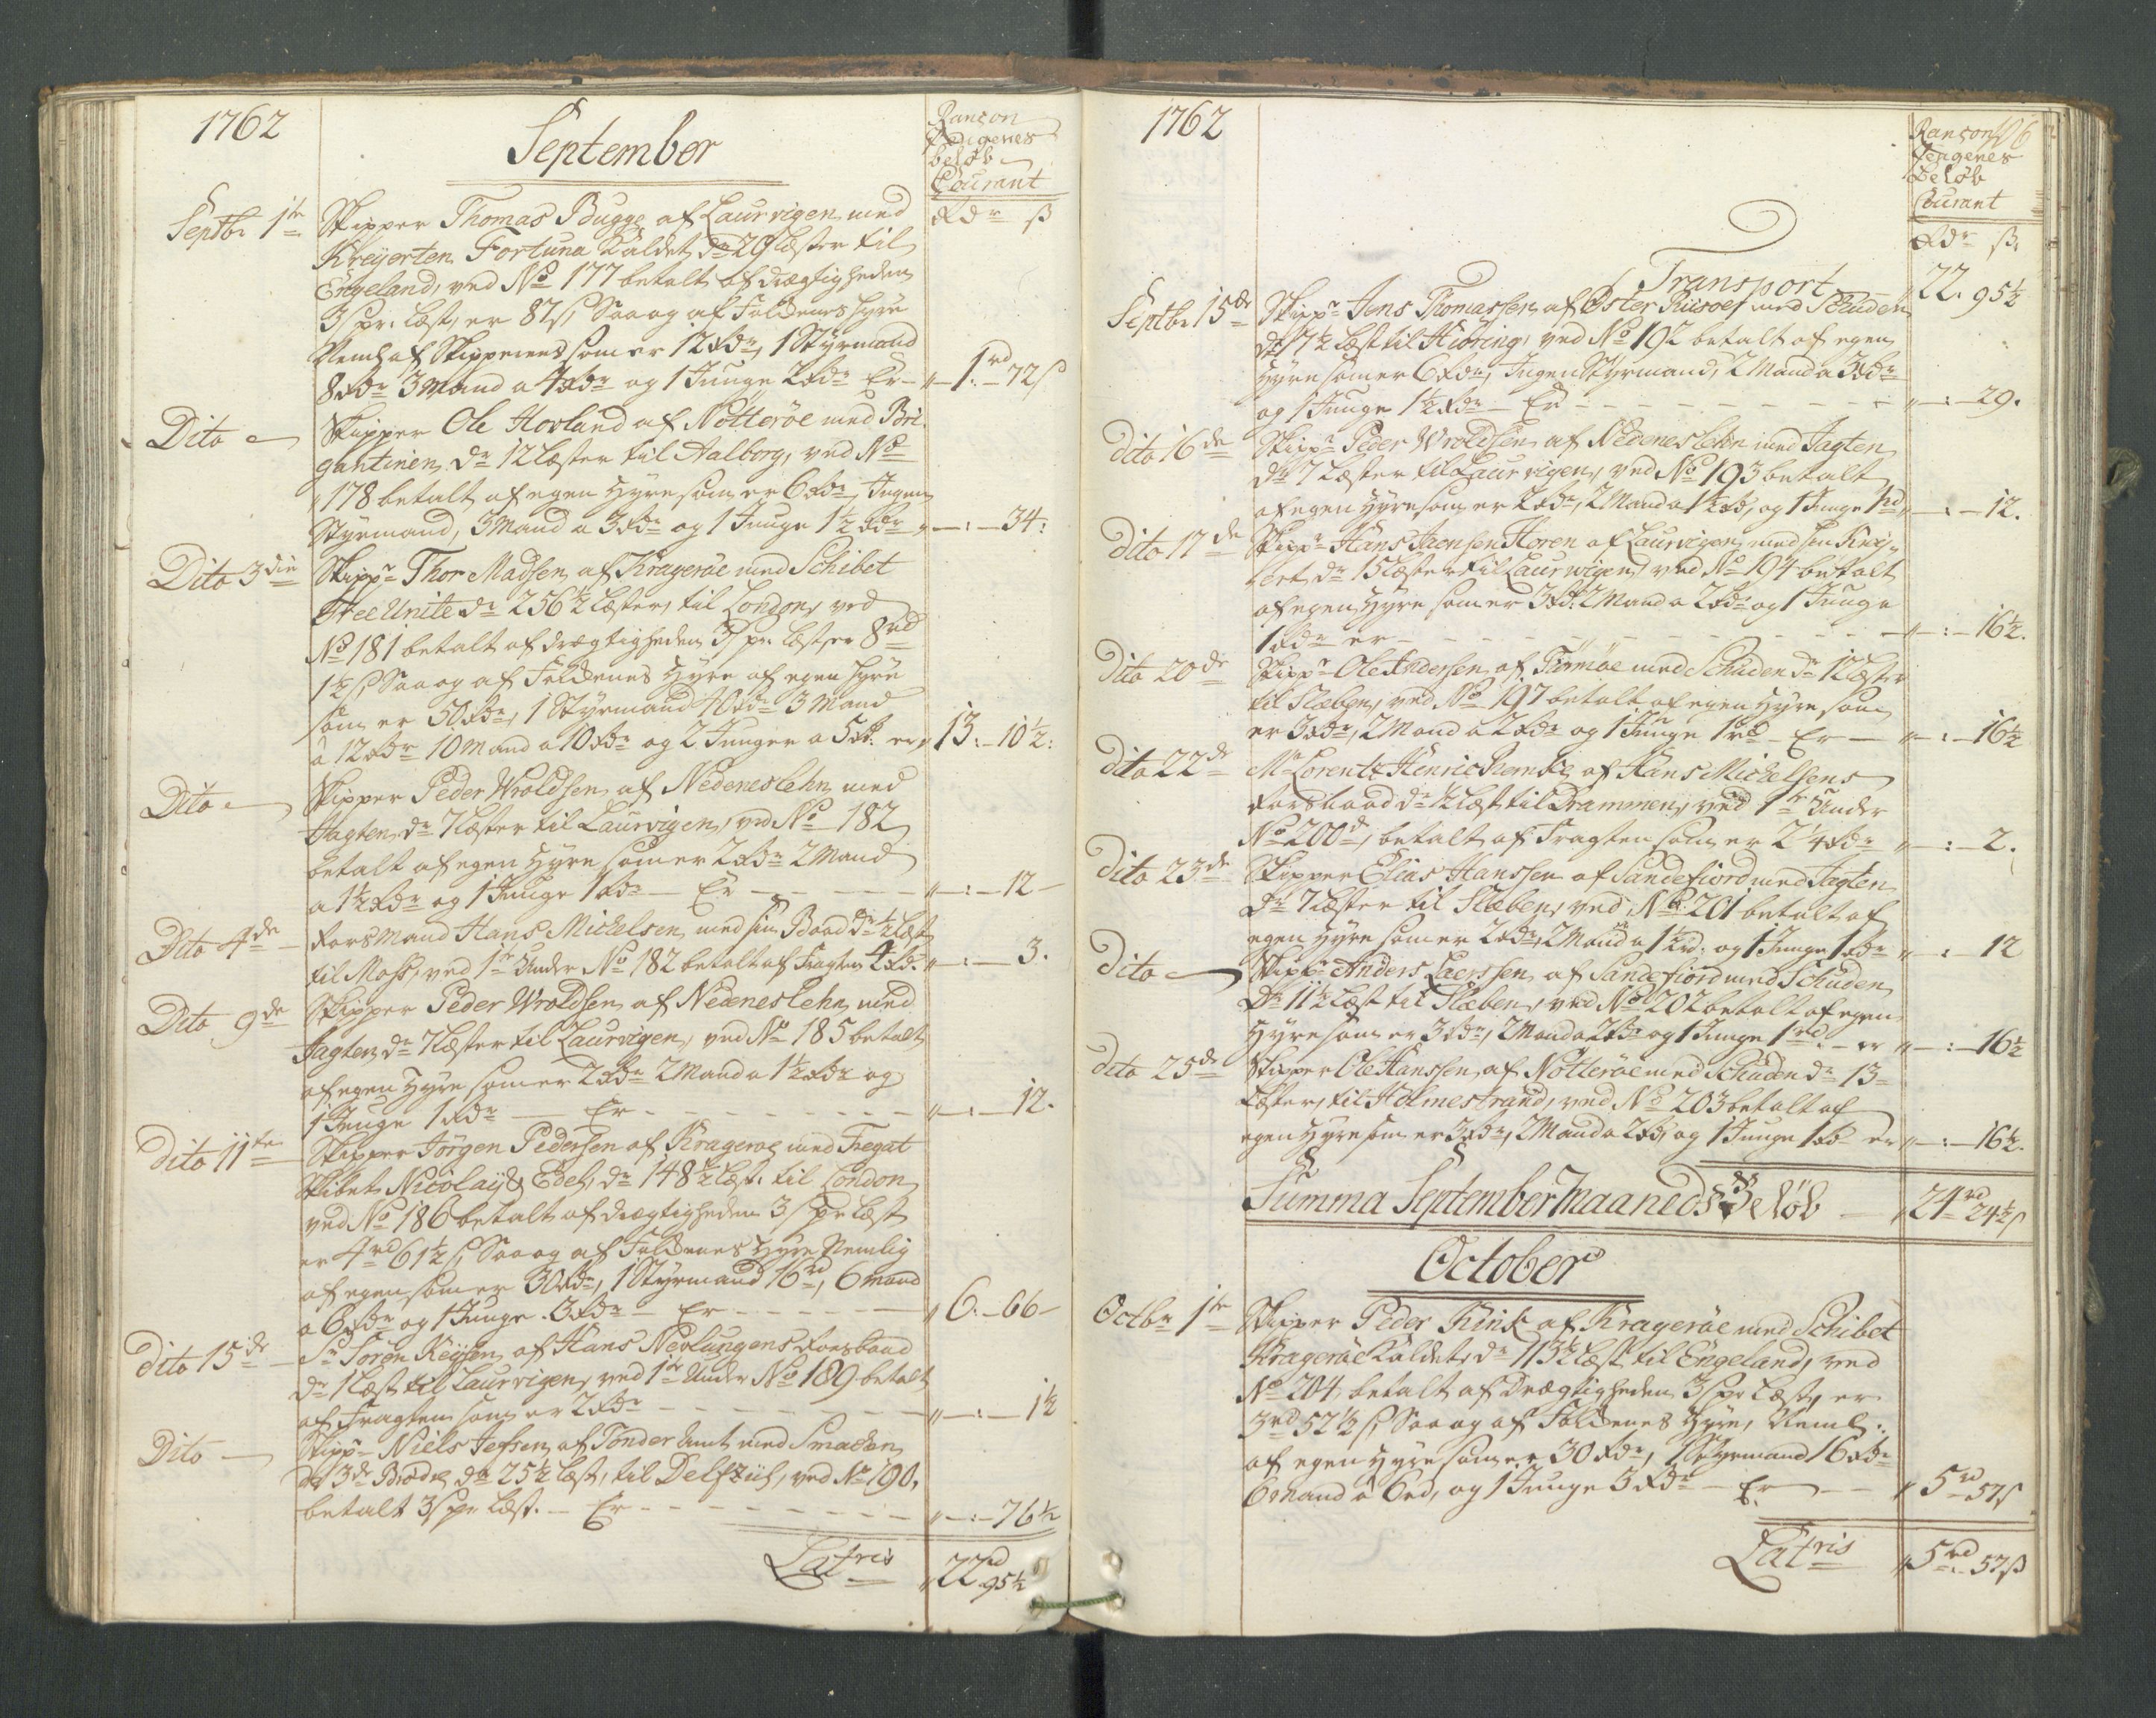 1762
September
Ranson
Pengenes
beløb
Courant
Rdr ß
Septbr 1te
Skipper Thomas Bugge af Laurvigen med
Kreyerten Fortuna Kaldet dr 29 Læster til
Engeland, ved No 177 betalt af drægtigheden
3 s pr. Læst, er 87 s, Saa og af Folckenes hyre
Neml. af Skipperens som er 12 Rdr, 1 Styrmand
8 Rdr 3 Mand a 4 Rdr og 1 Junge 2 Rdr Er - „ 1rd - 72 s
Dito
Skipper Ole Hovland af Nøtterøe med Bri-
gantinen dr 12 Læster til Aalborg, ved No
178 betalt af egen Hyre som er 6 Rdr, Ingen
Styrmand, 3 Mand a 3 Rdr og 1 Junge 1½ Rdr „ - : - 34 :
Dito 3die
Skippr Thor Madsen af Kragerøe med Schibet
Free Unite dr 256½ Læster, til London, ved
No 181 betalt af drægtigheden 3 s pr. Læst, er 8rd
1½ s, Saa og af Folckenes Hyre af egen hyre
som er 50 Rdr, 1 Styrmand 40 Rdr 3 Mand
à 12 Rdr 10 Mand a 10 Rdr og 2 Junger a 5 Rd. er „ 13 : - 10½ :
Dito
Skipper Peder Wroldsen af Nedeneslehn med
Jagten dr 7 Læster til Laurvigen, ved No 182
betalt af egen Hyre som er 2 Rdr 2 Mand
a 1½ Rdr og 1 Junge 1 Rdr - Er - - - - „ - : - 12 -
Dito 4de
Forsmand Hans Michelsen med sin Baad dr ½ Læst
til Moss, ved 1te Under No 182 betalt af Fragten 4 Rd. „ - : - 3.
Dito 9de
Skipper Peder Wroldsen af Nedeneslehn med
Jagten dr 7 Læster til Laurvigen, ved No 185 betalt
af egen Hyre som er 2 Rdr 2 Mand a 1½ Rdr og
1 Junge 1 Rdr - Er - - - - „ - : - 12.
dito 11te
Skipper Jörgen Pedersen af Kragerøe med Fregat
Skibet Nicolay & Edel, dr 148½ Læst. til London
ved No 186 betalt af drægtigheden 3 s pr Læst
er 4rd 61½ s, Saa og af Folckenes Hyre Nemlig
af egen som er 30 Rdr, 1 Styrmand 16rd, 6 mand
a 6 Rdr og 1 Junge 3 Rdr - Er - - - - „ 6 : - 66 -
dito 15de
Sr Søren Reysen af Hans Nevlungens Forsbaad
dr 1 Læst til Laurvigen, ved 1te Under No 189 betalt
af Fragten som er 2 Rdr - - - - „ - : - 1½
Dito -
Skippr Niels Jessen af Tonder Amt med Smacken
de 3de Brødre dr 25½ Læst, til Delfziil, ved No 190.
betalt 3 s pr Læst. - Er - - - - „ - : - 76½
Latris „ 22rd 95½
1762
106
Ranson
Pengenes
Beløb
Courant
Rdr ß.
Transport - 22. 95½
Septbr 15de
Skippr Jens Thomassen af Øster Riisøer med Schuden
dr 17½ Læst til Hiøring, ved No 192 betalt af egen
Hyre som er 6 Rdr, Ingen Styrmand, 2 Mand a 3 Rdr
og 1 Junge 1½ Rdr - Er - - - - „ - : - 29.
dito 16de
Skippr Peder Wroldsen af Nedeneslehn med Jagten
dr 7 Læster til Laurvigen, ved No 193 betalt
af egen Hyre som er 2 Rdr, 2 Mand a 1½ Rd, og 1 Junge 1rd „ - : - 12.
dito 17de
Skippr Hans Jensen Floren af Laurvigen med sin Krey-
ert dr 15 Læster til Laurwigen, ved No 194 betalt
af egen Hyre som er 3 Rd: 2 Mand a 2 Rdr og 1 Junge
1 Rdr er - - - - „ - : - 16½.
dito 20de
Skippr Ole Andersen af Tiømøe med Schuden dr 12 Læster
til Slæben, ved No 197 betalt af egen Hyre som
er 3 Rdr, 2 Mand a 2 Rdr og 1 Junge 1rd - Er - „ - : - 16½
dito 22de
Mr Lorentz Henric Lemke af Hans Michelsens
Forsbaad dr ½ Læst til Drammen, ved 1te Under
No 200de, betalt af Fragten som er 2¼ Rdr „ - : - 2.
dito 23de
Skipper Elias Hanssen af Sandefiord med Jagten
Dr 7 Læster til Slæben, ved No 201 betalt af
egen Hyre som er 2 Rdr, 2 Mand a 1½ rd: og 1 Junge 1 Rdr „ - : - 12
dito
Skippr Anders Larssen af Sandefiord med Schuden
Dr 11½ Læst til Slæben, ved No 202 betalt af egen
Hyre som er 3 Rdr, 2 Mand a 2 Rdr og 1 Junge 1rd. - er „ - : - 16½
dito 25de
Skipper Ole Hanssen af Nøtterøe med Schuden dr 13
Læster, til Holmestrand, ved No 203 betalt af
egen Hyre som er 3 Rdr, 2 Mand a 2 Rd, og 1 Junge 1 Rd er „ - : - 16½.
Summa September Maaneds Beløb - „ 24rd 24½ s
October
Octbr 1te
Skipper Peder Rink af Kragerøe med Schibet
Kragerøe Kaldet, dr 113½ Læst til Engeland, ved
No 204 betalt af Drægtigheden 3 s pr Læst, er
3rd 52½ s, Saa og af Folckenes Hyre, Neml.:
af egen Hyre som er 30 Rdr, 1 Styrmand 16 Rdr
6 mand à 6rd, og 1 Junge 3 Rdr - Er - - „ 5rd 57 s
Latris „ 5rd : 57 ß